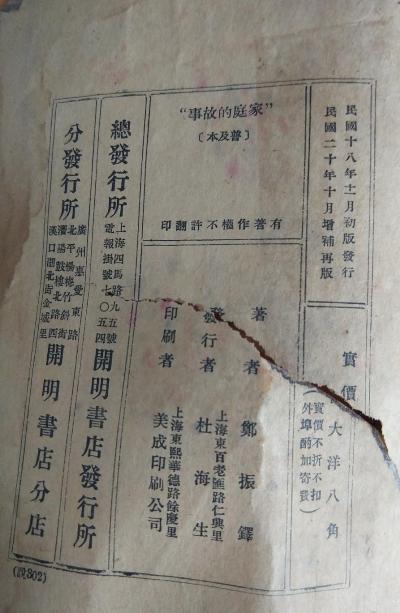 民國十八年十一月初版發行
民國二十年十月增補再版
實價大洋八角
（實價不折不扣
外埠酌加寄費）
“家庭的故事”
〔普及本〕
有著作權不許翻印
著者 鄭振鐸
發行者 杜海生
上海東百老匯路仁興里
印刷者 美成印刷公司
上海東熙華德路餘慶里
總發行所
上海四馬路九五號
電報掛號七〇五四
開明書店發行所
分發行所
廣州惠愛東路
北平楊梅竹斜街
瀋陽鼓樓北路西
漢口湖北街金城里
開明書店分店